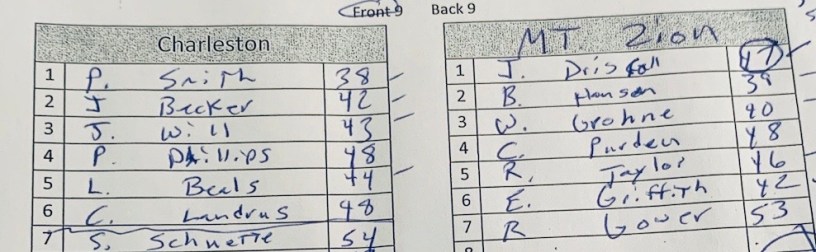 Front 9 Back 9
Charleston
1 P. Smith 38
2 J Becker 42
3 J. Will 43
4 P. Phillips 48
5 L. Beals 44
6 C. Landrus 48
7 S. Schnette 54
MT. Zion
1 J. Driskoll 47
2 B. Hansen 39
3 W. Grohne 40
4 C. Purden 48
5 R. Taylor 46
6 E. Griffith 42
7 R Gower 53